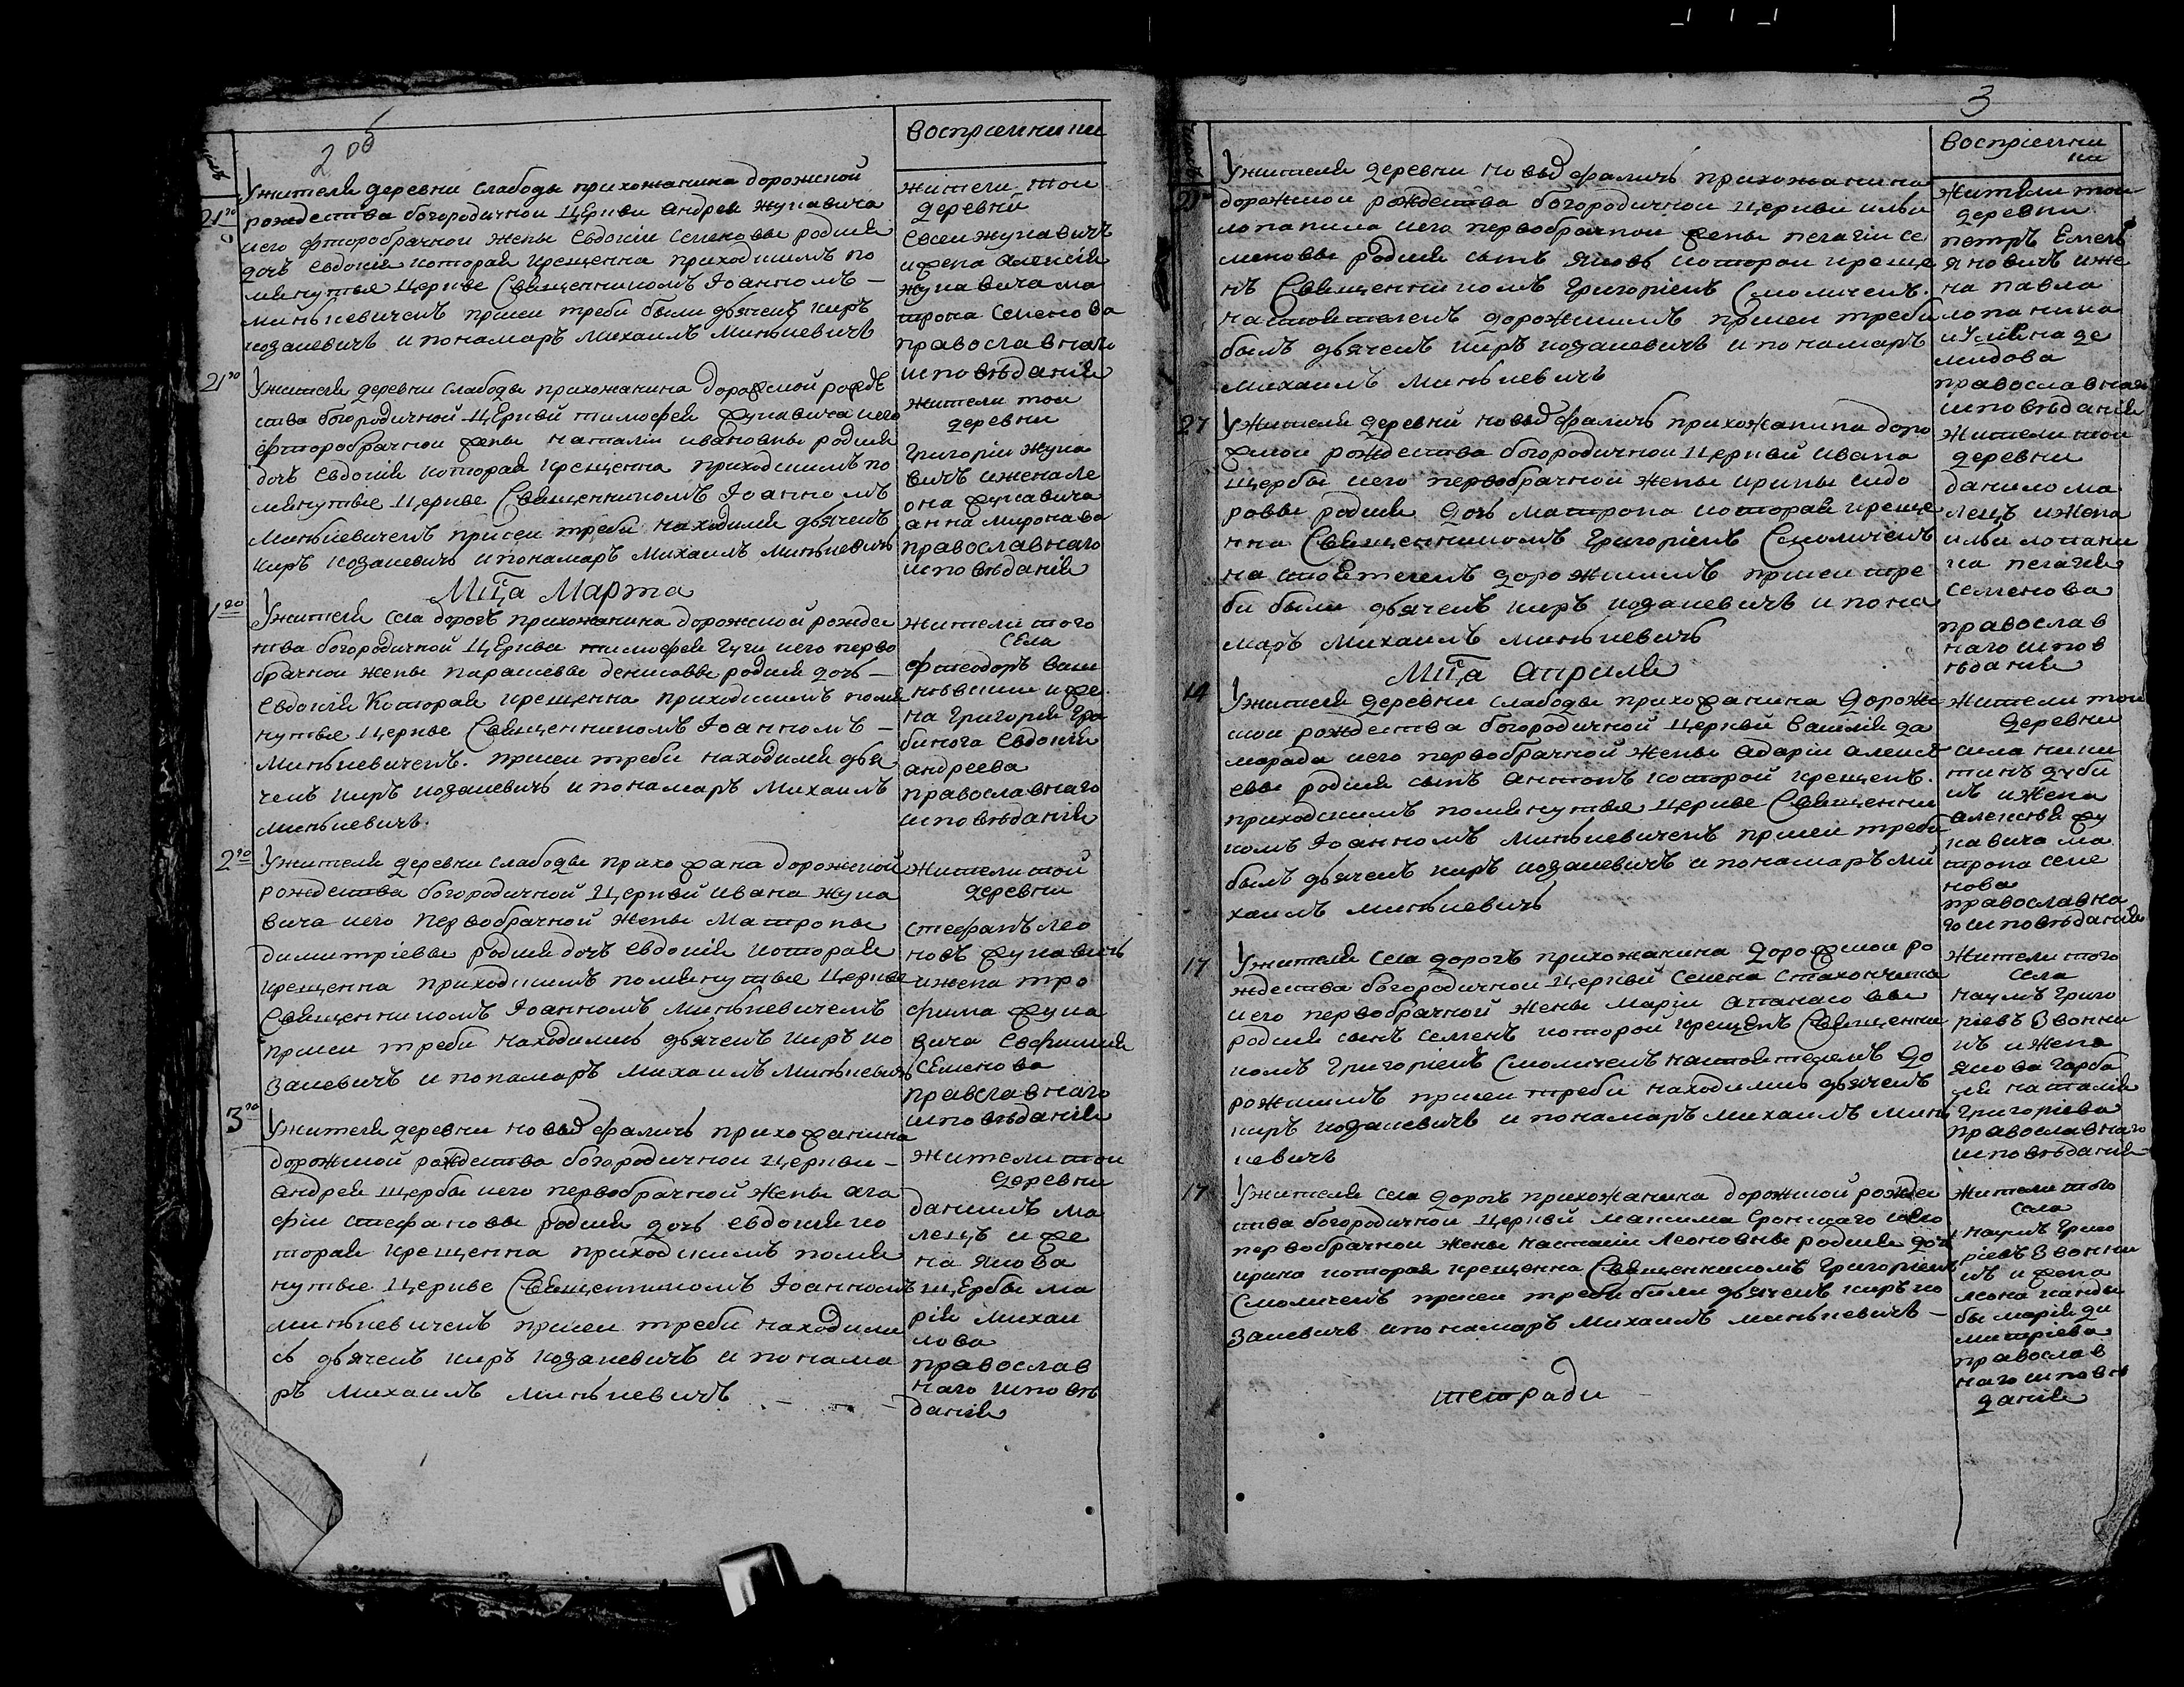 2 об
воспрiемники
21го
Ужителя деревни слабоды прихожанина дорожской
рождества богородичной церкви андрея жукавича
иего фторобрачной жены евдокiи семеновы родися
дочь евдокiя которая крещенна приходскимъ по
мянутыя церкве Священникомъ Iоанномъ –
Миньпевичемъ присеи треби были дьячекъ киръ
козакевичъ и понамаръ михаилъ миньпевичъ
жители тои
деревни
евсеи жукавичъ
ижена алексiя
жукавича ма
трона семенова
православнаго
исповѣданiя
21го
Ужителя деревни слабоды прихожанина дорожской рождѣ
ства богородичной церквй тимофея жукавича иего
фторобрачнои жены наталiи ивановны родися
дочь евдокiя которая крещенна приходскимъ по
мянутыя церкве Священникомъ Iоанномъ
миньпевичемъ присеи треби находился дьячекъ
киръ козакевичъ ипонамаръ михаилъ миньпевичъ
жители тои
деревни
григорiи жука
вичъ ижена ле
она жукавича
анна миронава
православнаго
исповѣданiя
Мцa Марта
1го
Ужителя села дорогъ прихожанина дорожской рожде
ства богородичной церкви тимофея гуги иего перво
брачнои жены параскевы денисовы родися дочь –
евдокiя которая крещенна приходскимъ помя
нутыя церкве Священникомъ Iоанномъ –
Миньпевичемъ. присеи треби находился дья
чекъ киръ козакевичъ и понамаръ михаилъ
миньпевичъ.
жители того
села
фтеодоръ
и же
на григорiя гра
бинога евдокiя
андреева
православнаго
исповѣданiя
2го
Ужителя деревни слабоды прихожана дорожской
рождества богородичной церквй ивана жука
вича иего первобрачной жены матроны
димитрiевы родися дочь евдокiя которая
крещенна приходскимъ помянутыя церкве
Священникомъ Iоанномъ миньпевичемъ
присеи треби находились дьячекъ киръ ко
закевичъ и понамаръ михаилъ миньпевичъ
жители той
деревни
стефанъ лео
новъ жукавичъ
ижена тро
фима жука
вича евфимия
семенова
правславнаго
исповѣданiя
3го
Ужителя деревни новыд фаличъ прихожанина
дорожской рождества богородичнои церкви –
андрея щербы иего первобрачной жены ага
фiи стефановы родися дочь евдокiя ко
торая крещенна приходскимъ помя
нутыя церкве Священникомъ Iоанномъ
миньпевичемъ присеи треби находили
сь дьячекъ киръ козакевичъ и понама
ръ михаилъ миньпевичъ
жители тои
деревни
даниилъ ма
лецъ и же
на якова
щербы ма
рiя михаи
лова
православ
наго исповѣ
данiя
3
воспрiемни
ки
21
Ужителя деревни новыд фаличъ прихожанина
дорожскои рождества богородичнои церкви ильи
лопаника иего первобрачнои жены пелагiи се
меновы родися сынъ яковъ которои креще
нъ Священникомъ григорiемъ смоличемъ.
настоятелемъ дорожскимъ присеи треби
былъ дьячекъ киръ козакевичъ и понамаръ
михаилъ миньпевичъ
жители тои
деревни
петръ емель
яновичъ иже
на павла
лопаника
де
мидова
православнаго
исповѣданiя
27
Ужителя деревнй новыд фаличъ прихожанина доро
жскои рождества богородичнои церквй ивана
щербы иего первобрачнои жены ирины сидо
ровы родися дочь матрона которая креще
нна Священникомъ григорiемъ Смоличемъ
настоятелемъ дорожскимъ присеи тре
би были дьячекъ киръ козакевичъ и пона
маръ михаилъ миньпевичъ
жители тои
деревни
данило ма
лецъ ижена
ильи лопани
ка пелагия
семенова
православ
наго испов
ѣданiя
Мцa Априля
14
Ужителя деревни слабоды прихожанина дорожс
кои рождества богородичной церквй василiя да
марада иего первобрачной жены адарiи алексѣ
евы родися сынъ антонъ которой крещенъ.
приходскимъ помянутыя церкве Священни
комъ Iоанномъ миньпевичемъ присеи треби
былъ дьячекъ киръ козакевичъ и понамаръ ми
хаилъ миньпевичъ
жители тои
деревни
сила ники
тинъ дуби
къ ижена
алексѣя жу
кавича ма
трона семе
нова
православна
го исповѣданiя
17
Ужителя села дорогъ прихожанина дорожскои ро
ждества богородичнои церквй семена стахончика
иего первобрачной жены марiи атанасовы
родися сынъ семенъ которои крещенъ Священни
комъ григорiемъ смоличемъ настоятелемъ до
рожскимъ присеи треби находились дьячекъ
киръ козакевичъ и понамаръ михаилъ минь
певичъ
жители того
села
наумъ григо
рiевъ звонни
къ ижена
якова гарба
ля наталiя
григорiева
православнаго
исповѣданiя
17
Ужителя села дорогъ прихожанина дорожской рожде
ства богородичнои церквй максима иего
первобрачнои жены настасiи леоновны родися доч
ирина которая крещенна Священникомъ григорiемъ
Смоличемъ присеи треби были дьячекъ киръ ко
закевичъ ипонамаръ михаилъ миньпевичъ –
жители того
села
наумъ григо
рiевъ звонни
къ и жена
леона канды
бы марiя ди
митрiева
православ
наго исповѣ
данiя
тетради